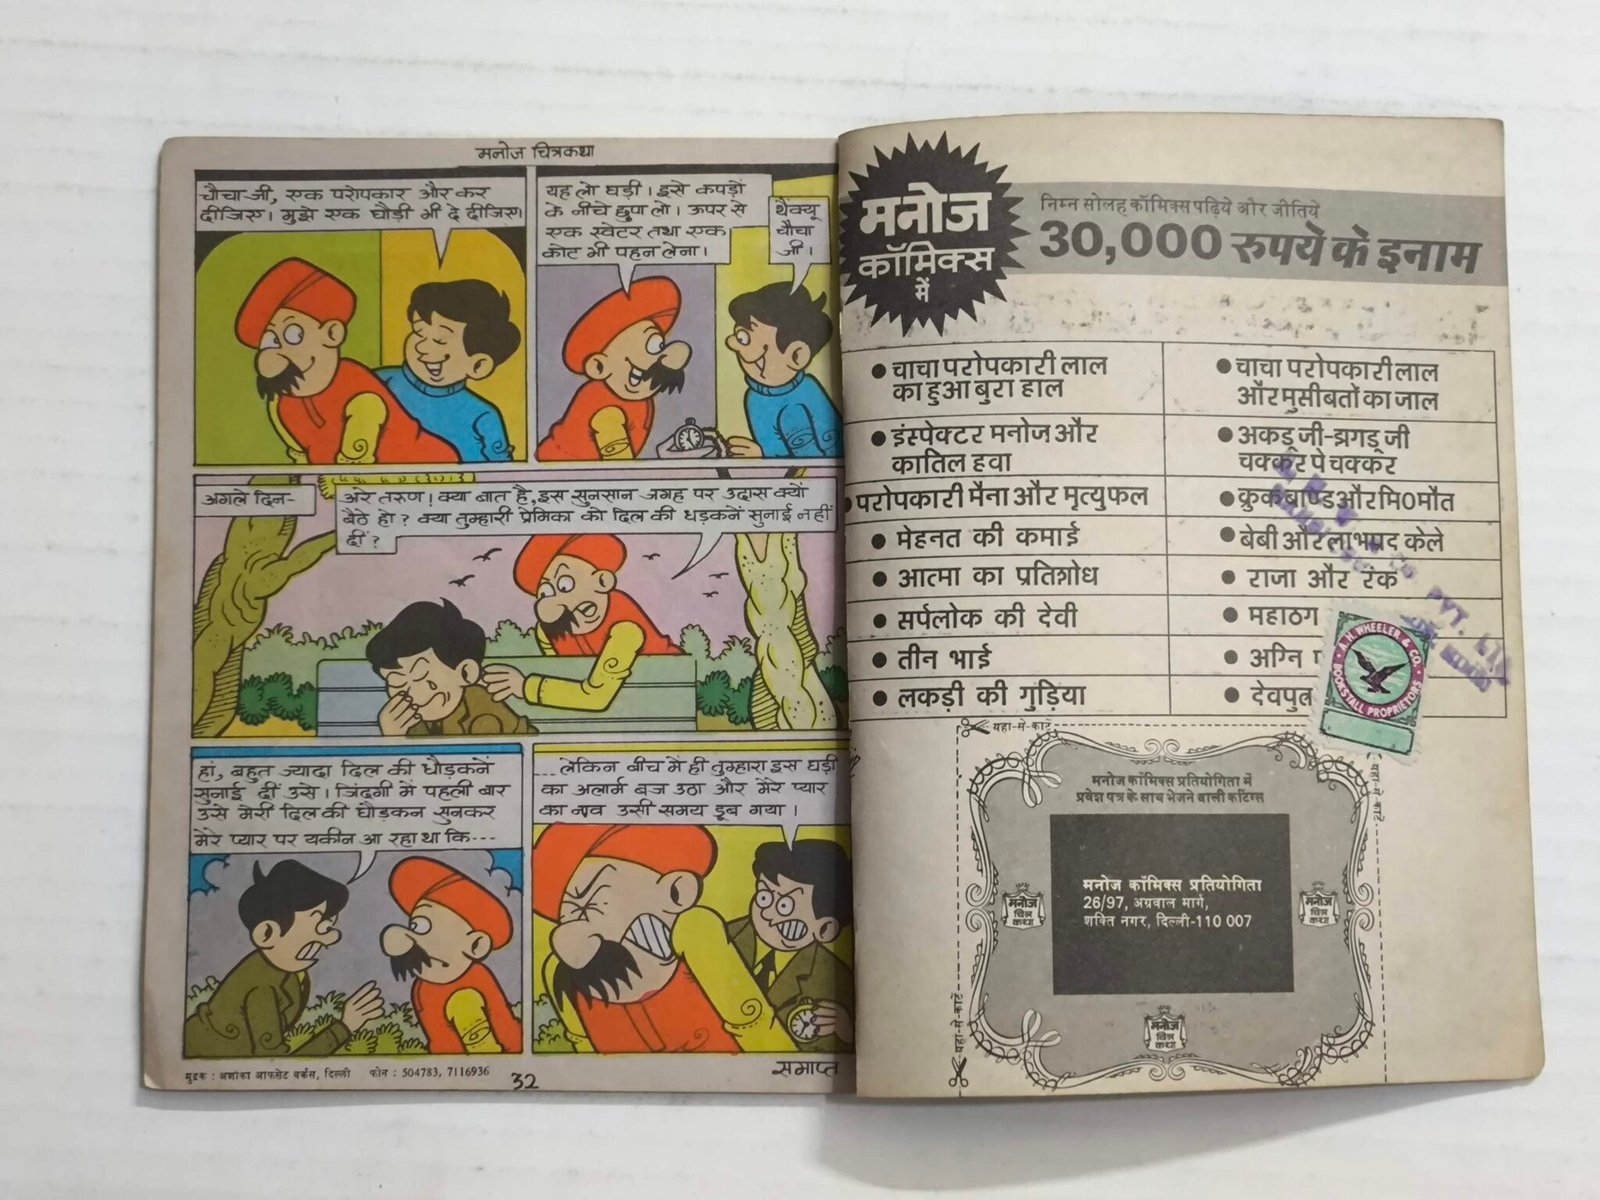 मनोज चित्रकथा
चौचा जी, एक परोपकार और कर
दीजिए। मुझे एक घौड़ी भी दे दीजिए।
यह लो घड़ी। इसे कपड़ों
के नीचे छुपा लो। ऊपर से
एक स्वेटर तथा एक
कोट भी पहन लेना।
थैंक्यू
चौचा
जी।
अगले दिन-
अरे तरुण! क्या बात है, इस सुनसान जगह पर उदास क्यों
बैठे हो? क्या तुम्हारी प्रेमिका को दिल की धड़कनें सुनाई नहीं
दीं?
हां, बहुत ज्यादा दिल की धौड़कनें
सुनाई दीं उसे। जिंदगी में पहली बार
उसे मेरी दिल की धौड़कन सुनकर
मेरे प्यार पर यकीन आ रहा था कि---
...लेकिन बीच में ही तुम्हारा इस घड़ी
का अलार्म बज उठा और मेरे प्यार
का नाव उसी समय डूब गया।
मुद्रक : अशोका आफसेट वर्कस, दिल्ली फोन : 504783, 7116936
32
समाप्त
मनोज
कॉमिक्स
में
निम्न सोलह कॉमिक्स पढ़िये और जीतिये
30,000 रुपये के इनाम
● चाचा परोपकारी लाल
का हुआ बुरा हाल
● चाचा परोपकारी लाल
और मुसीबतों का जाल
● इंस्पेक्टर मनोज और
कातिल हवा
● अकडू जी-झगडू जी
चक्कर पे चक्कर
● परोपकारी मैना और मृत्युफल
● क्रुकबाण्ड और मि0 मौत
● मेहनत की कमाई
● बेबी और लाभप्रद केले
● आत्मा का प्रतिशोध
● राजा और रंक
● सर्पलोक की देवी
● महाठग
● तीन भाई
● अग्नि
● लकड़ी की गुड़िया
● देवपुत्र
PVT. LTD
A. H. WHEELER & CO.
BOOKSTALL PROPRIETORS
यहा-से-काटें
मनोज कॉमिक्स प्रतियोगिता में
प्रवेश पत्र के साथ भेजने वाली कटिंग्स
मनोज कॉमिक्स प्रतियोगिता
26/97, अग्रवाल मार्ग,
शक्ति नगर, दिल्ली-110 007
मनोज
चित्र
कथा
मनोज
चित्र
कथा
मनोज
चित्र
कथा
यहा-से-काटें
यहा-से-काटें